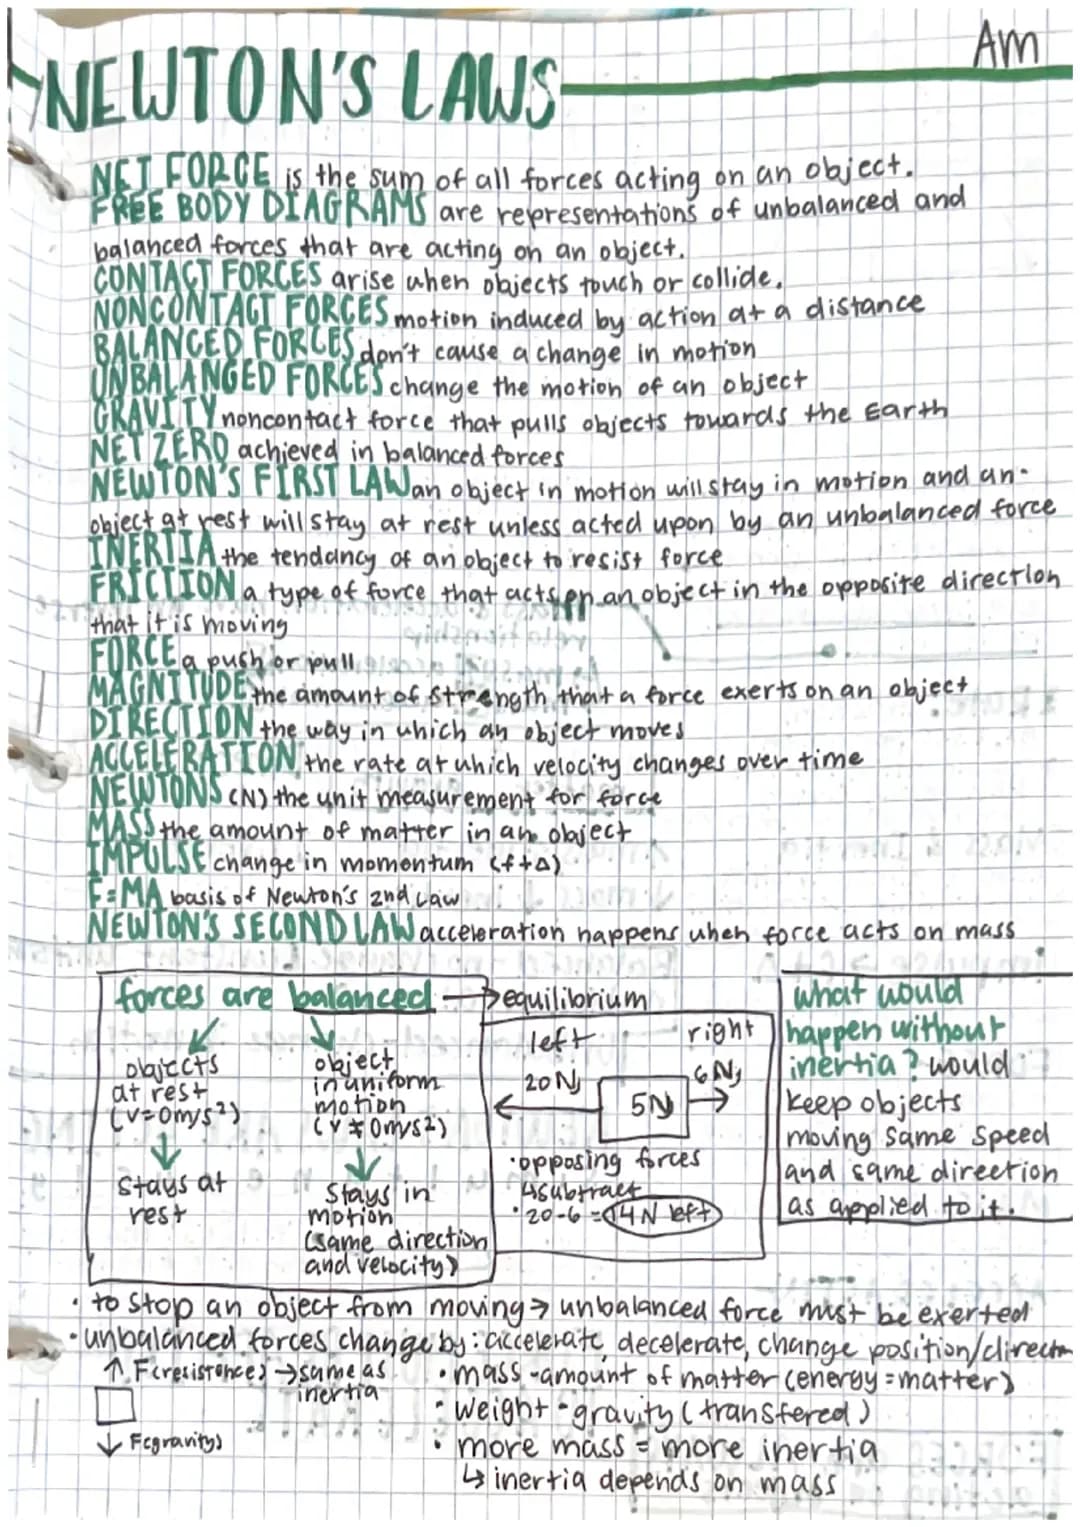 Am
NEWTON'S LAWS
NET FORCE is the sum of all forces acting on an object.
FREE BODY DIAGRAMS are representations of unbalanced and
balanced forces that are acting on an object.
CONTACT FORCES arise when objects touch or collide.
NONCONTACT FORCES motion induced by action at a distance
BALANCED FORCES don't cause a change in motion
UNBALANCED FORCES change the motion of an object
GRAVITY noncontact force that pulls objects towards the Earth
NET ZERO achieved in balanced forces
NEWTON'S FIRST LAW an object in motion will stay in motion and an
object at rest will stay at rest unless acted upon by an unbalanced force
INERTIA the tendancy of an object to resist force
FRICTION a type of force that acts on an object in the opposite direction
that it is moving
FORCE a push or pull
MAGNITUDE the amount of strength that a force exerts on an object
DIRECTION the way in which an object moves
ACCELERATION the rate at which velocity changes over time
NEWTONS (N) the unit measurement for force
MASS the amount of matter in an object
IMPULSE change in momentum (f+Δ)
F=MA basis of Newton's 2nd Law
NEWTON'S SECOND LAW acceleration happens when force acts on mass
forces are balanced → equilibrium
objects
at rest
(v=0m/s²)
↓
stays at
rest
object
in uniform
motion
(v≠0m/s²)
↓
stays in
motion
(same direction
and velocity)
left right
20N 5N 6N
•opposing forces
↳subtract
• 20-6 = 14N left
what would
happen without
inertia? would
keep objects
moving same speed
and same direction
as applied to it.
• to stop an object from moving → unbalanced force must be exerted
• unbalanced forces change by: accelerate, decelerate, change position/direction
↑ F(resistance) → same as
inertia
↓ F(gravity)
• mass - amount of matter (energy = matter)
• weight - gravity (transfered)
• more mass = more inertia
↳ inertia depends on mass